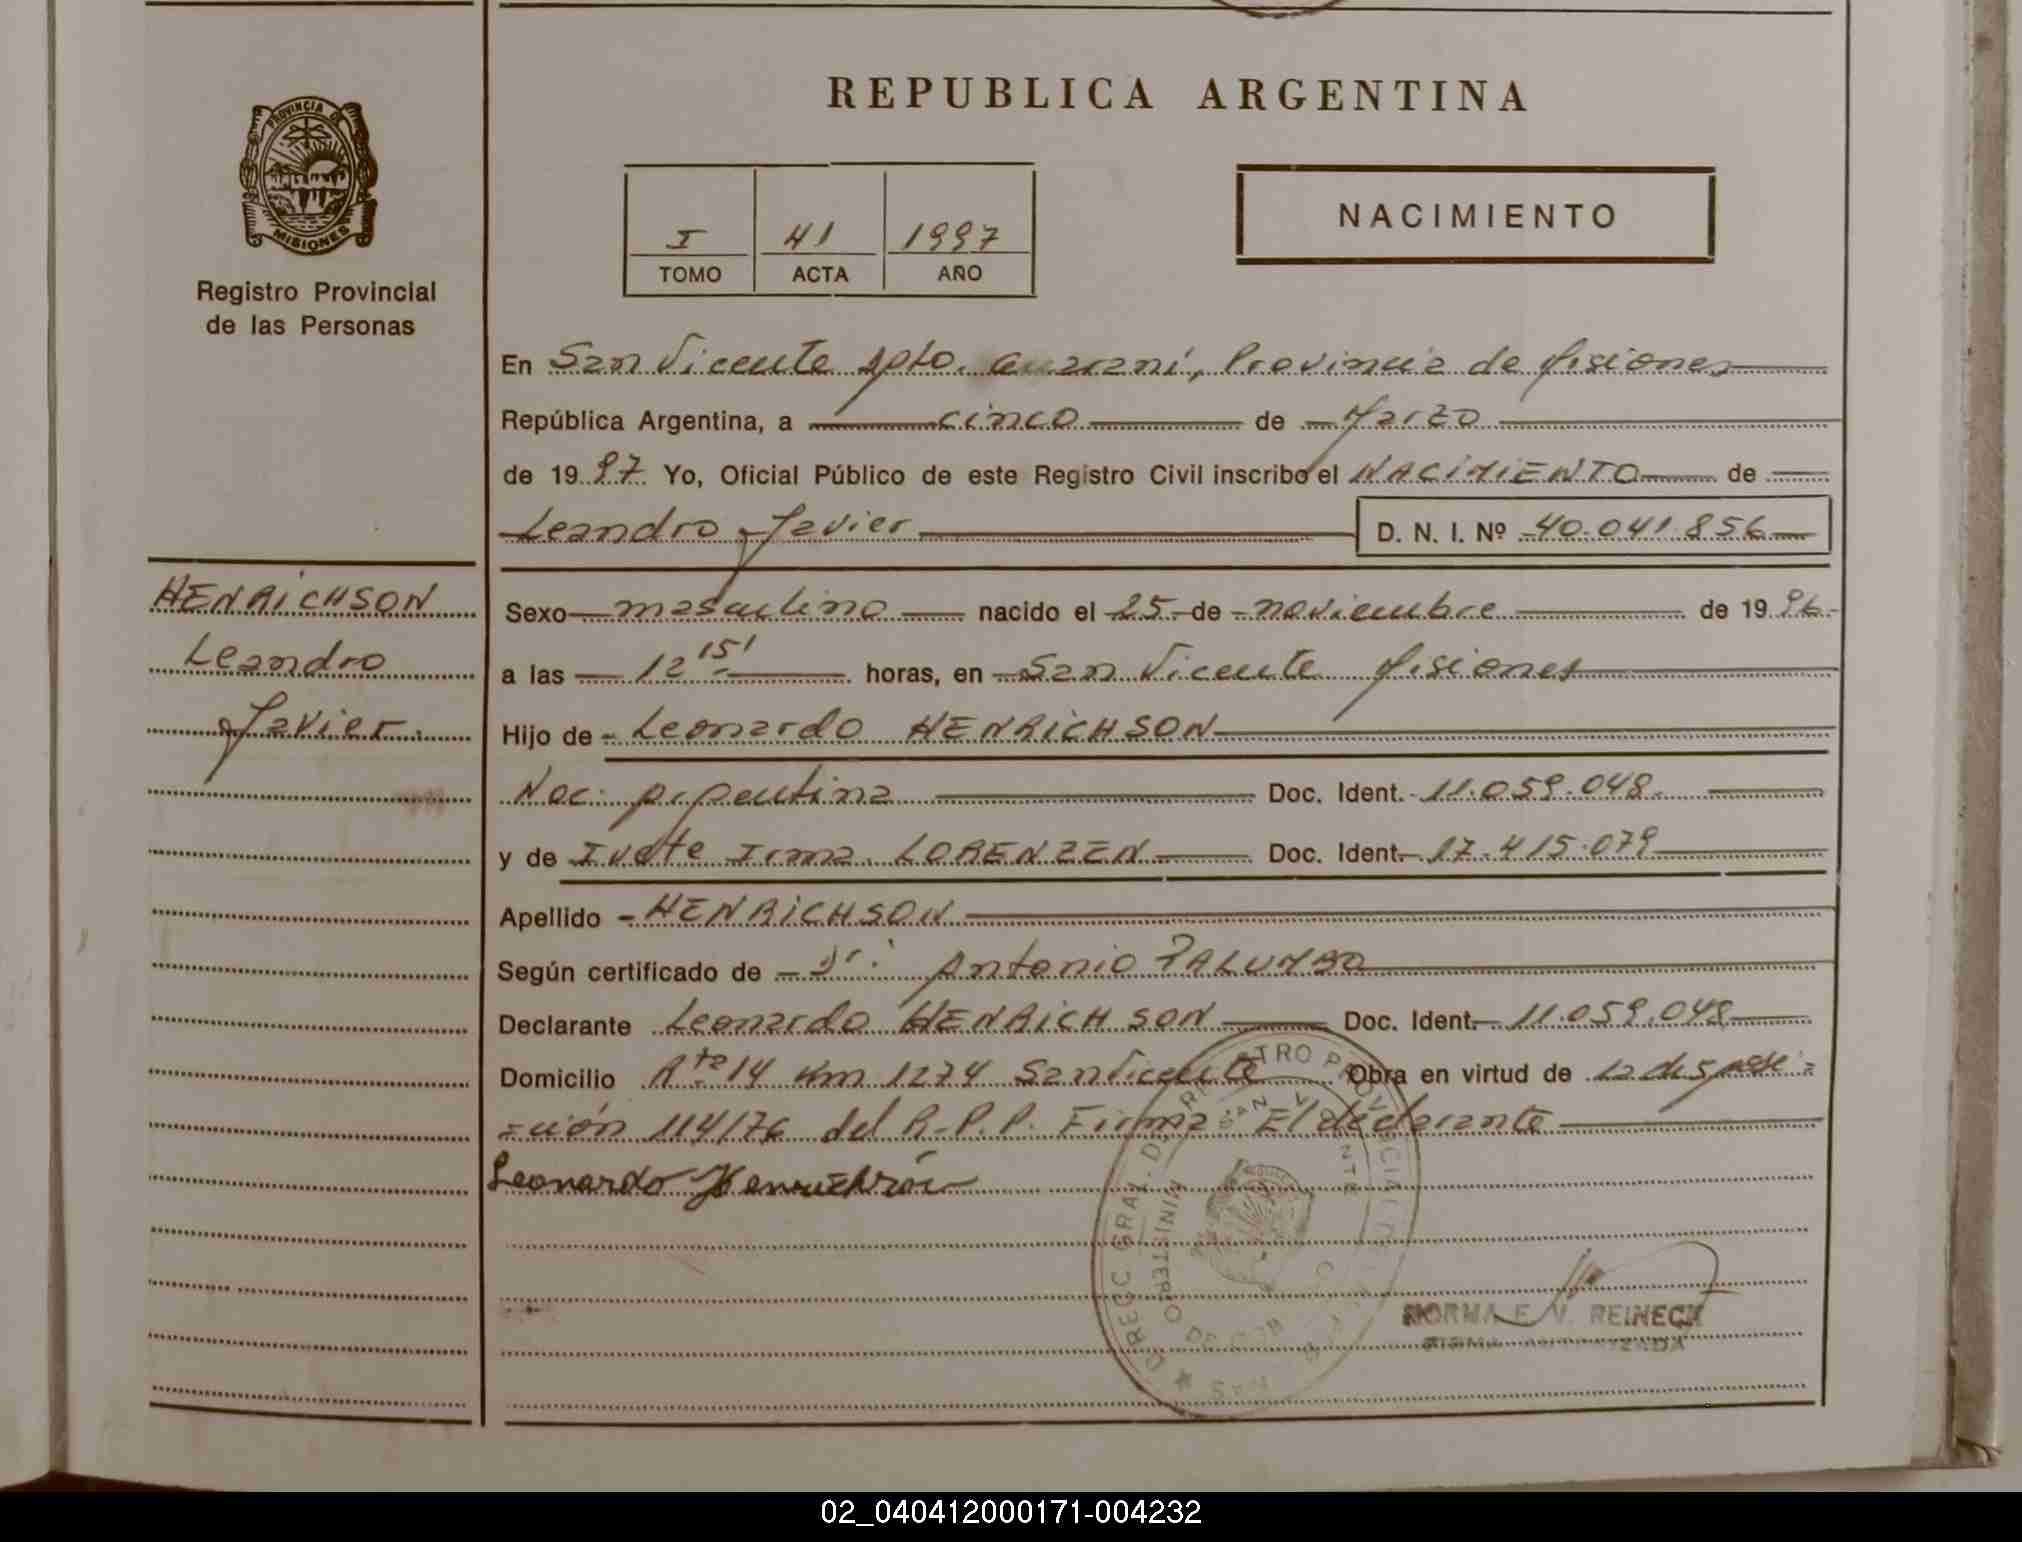 REPUBLICA ARGENTINA
PROVINCIA DE
MISIONES
Registro Provincial
de las Personas
I 41 1997
TOMO ACTA AÑO
NACIMIENTO
En San Vicente Dpto. Guaraní, Provincia de Misiones
República Argentina, a cinco de Marzo
de 1997 Yo, Oficial Público de este Registro Civil inscribo el NACIMIENTO de
Leandro Javier D. N. I. Nº 40.041.856
HENRICHSON
Leandro
Javier.
Sexo masculino nacido el 25 de noviembre de 1996
a las 12 15' horas, en San Vicente Misiones
Hijo de Leonardo HENRICHSON
Nac. Argentina Doc. Ident. 11.059.048.
y de Ivote Irma LORENZEN Doc. Ident. 17.415.079
Apellido HENRICHSON
Según certificado de Dr. Antonio PALUMBO
Declarante Leonardo HENRICHSON Doc. Ident. 11.059.048
Domicilio Rta 14 Km 1274 San Vicente Obra en virtud de la disposi=
=ción 114/76 del R.P.P. Firma: El declarante
Leonardo Henrichson
NORMA E. V. REINECK
FIRMA AUTORIZADA
02_040412000171-004232